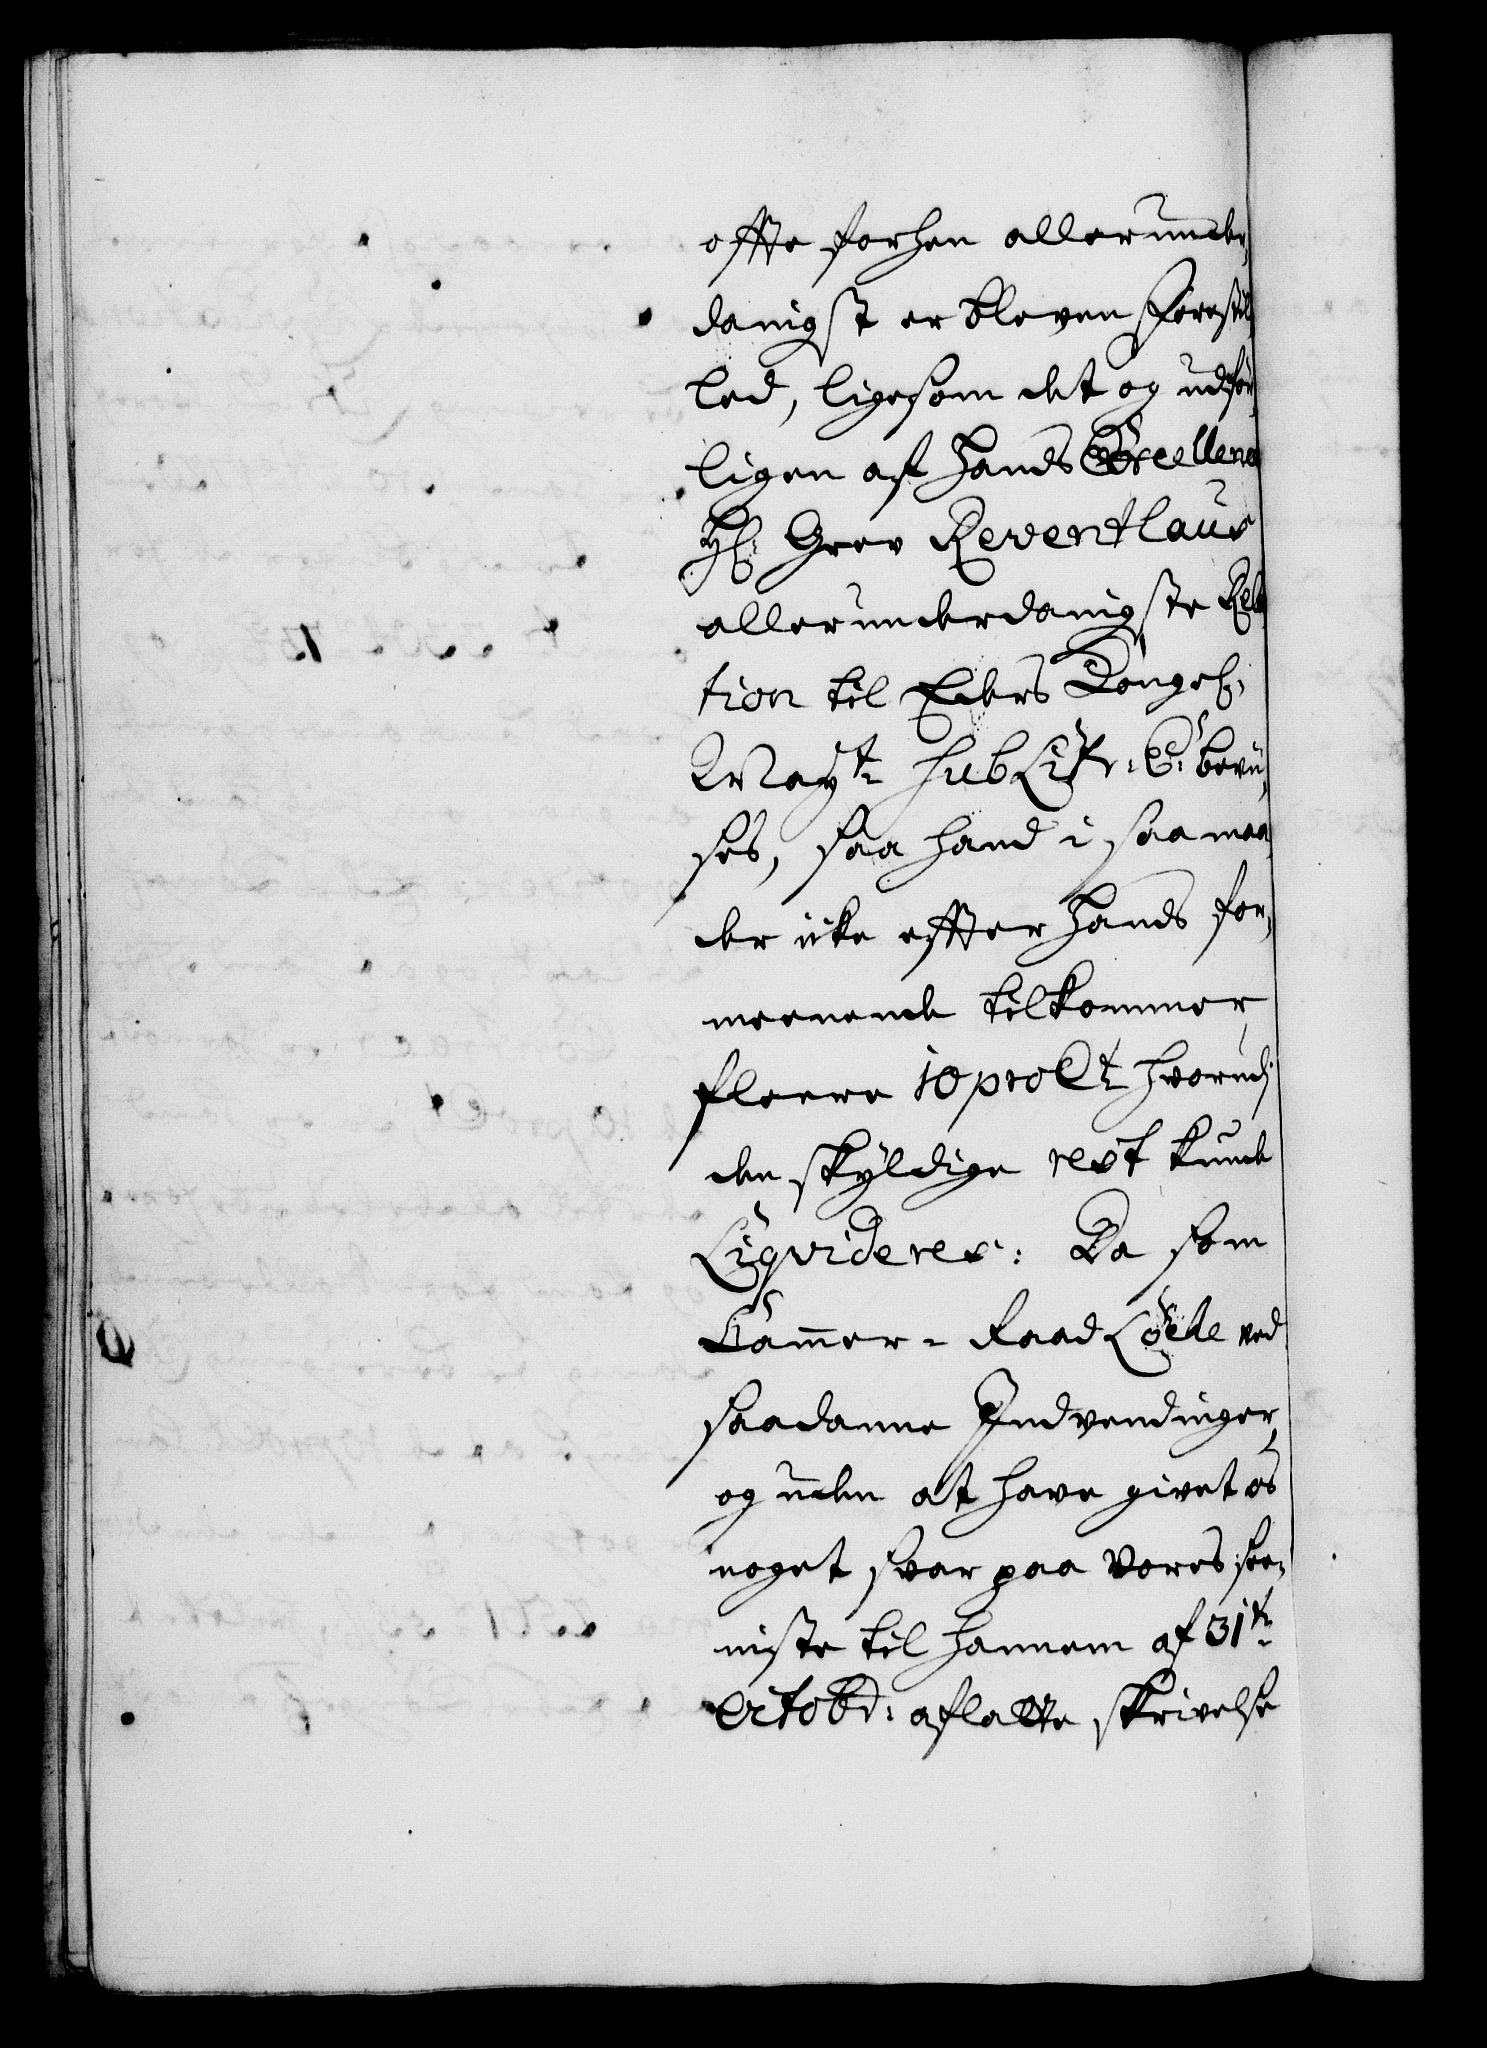 offte forhen allerunder,
danigst er bleven forestil,
led, ligesom det og udför,
ligen af Hands Excellence
Hr: Grev Reventlaus
allerunderdanigste Rela
tion til Eders Kongel:
Mayt: sub Litr: C: bevii,
ses, saa hand i saa maa,
der icke effter Hands for,
meenende tilkommer
fleere 10 pro Ct: hvorudj
den skyldige rest kunde
Liqvideres: Da som
Kammer-Raad Löcke ved
saadanne Indvendinger,
og uden at have givet os
noget svar paa vores see,
niste til hannem af 31te
Octobr: afladte skrivelse